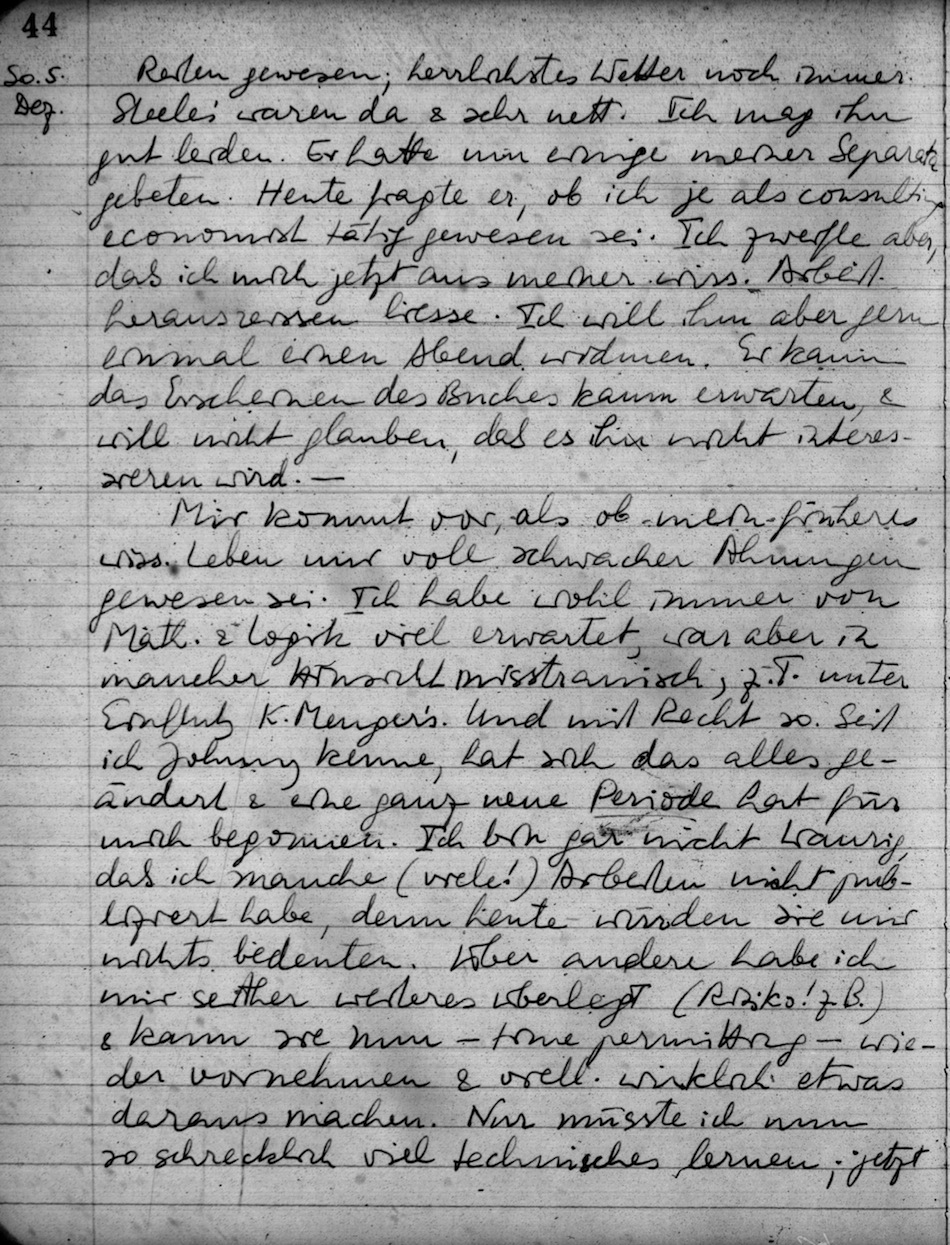 44
So. 5.
Dez.
Reiten gewesen; herrlichstes Wetter noch immer.
Steele's waren da & sehr nett. Ich mag ihn
gut leiden. Er hatte um einige meiner Separata
gebeten. Heute fragte er, ob ich je als consulting
economist tätig gewesen sei. Ich zweifle aber,
das ich mich jetzt aus meiner wiss. Arbeit
herausreissen liesse. Ich will ihm aber gern
einmal einen Abend widmen. Er kann
das Erscheinen des Buches kaum erwarten, &
will nicht glauben, das es ihn nicht interes-
sieren wird. —
Mir kommt vor, als ob mein früheres
wiss. Leben nur voll schwacher Ahnungen
gewesen sei. Ich habe wohl immer von
Math. & Logik viel erwartet, war aber in
mancher Hinsicht misstrauisch, z.T. unter
Einfluß K. Menger's. Und mit Recht so. Seit
ich Johnny kenne, hat sich das alles ge-
ändert & eine ganz neue Periode hat für
mich begonnen. Ich bin gar nicht traurig,
das ich manche (viele!) Arbeiten nicht pub-
liziert habe, denn heute würden sie mir
nichts bedeuten. Über andere habe ich
mir seither weiteres überlegt (Risiko! z.B.)
& kann sie nun – time permitting – wie-
der vornehmen & viell. wirklich etwas
daraus machen. Nur müsste ich nun
so schrecklich viel technisches lernen; jetzt